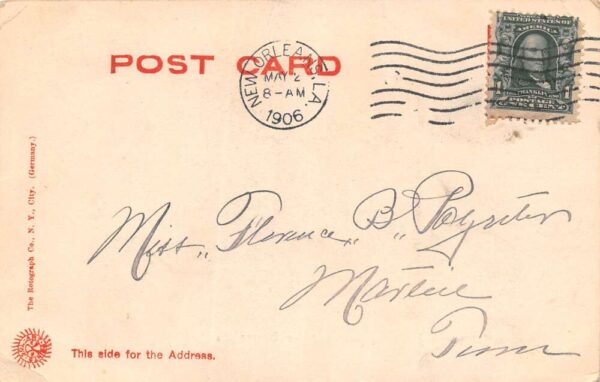 POST CARD
NEW ORLEANS, LA.
MAY 2
8-AM
1906
UNITED STATES OF AMERICA
FRANKLIN
POSTAGE
Miss Florence B. Poyster
Tenn
The Rotograph Co., N. Y., City. (Germany.)
This side for the Address.